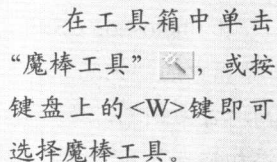 在工具箱中单击
“魔棒工具” ，或按
键盘上的<W>键即可
选择魔棒工具。